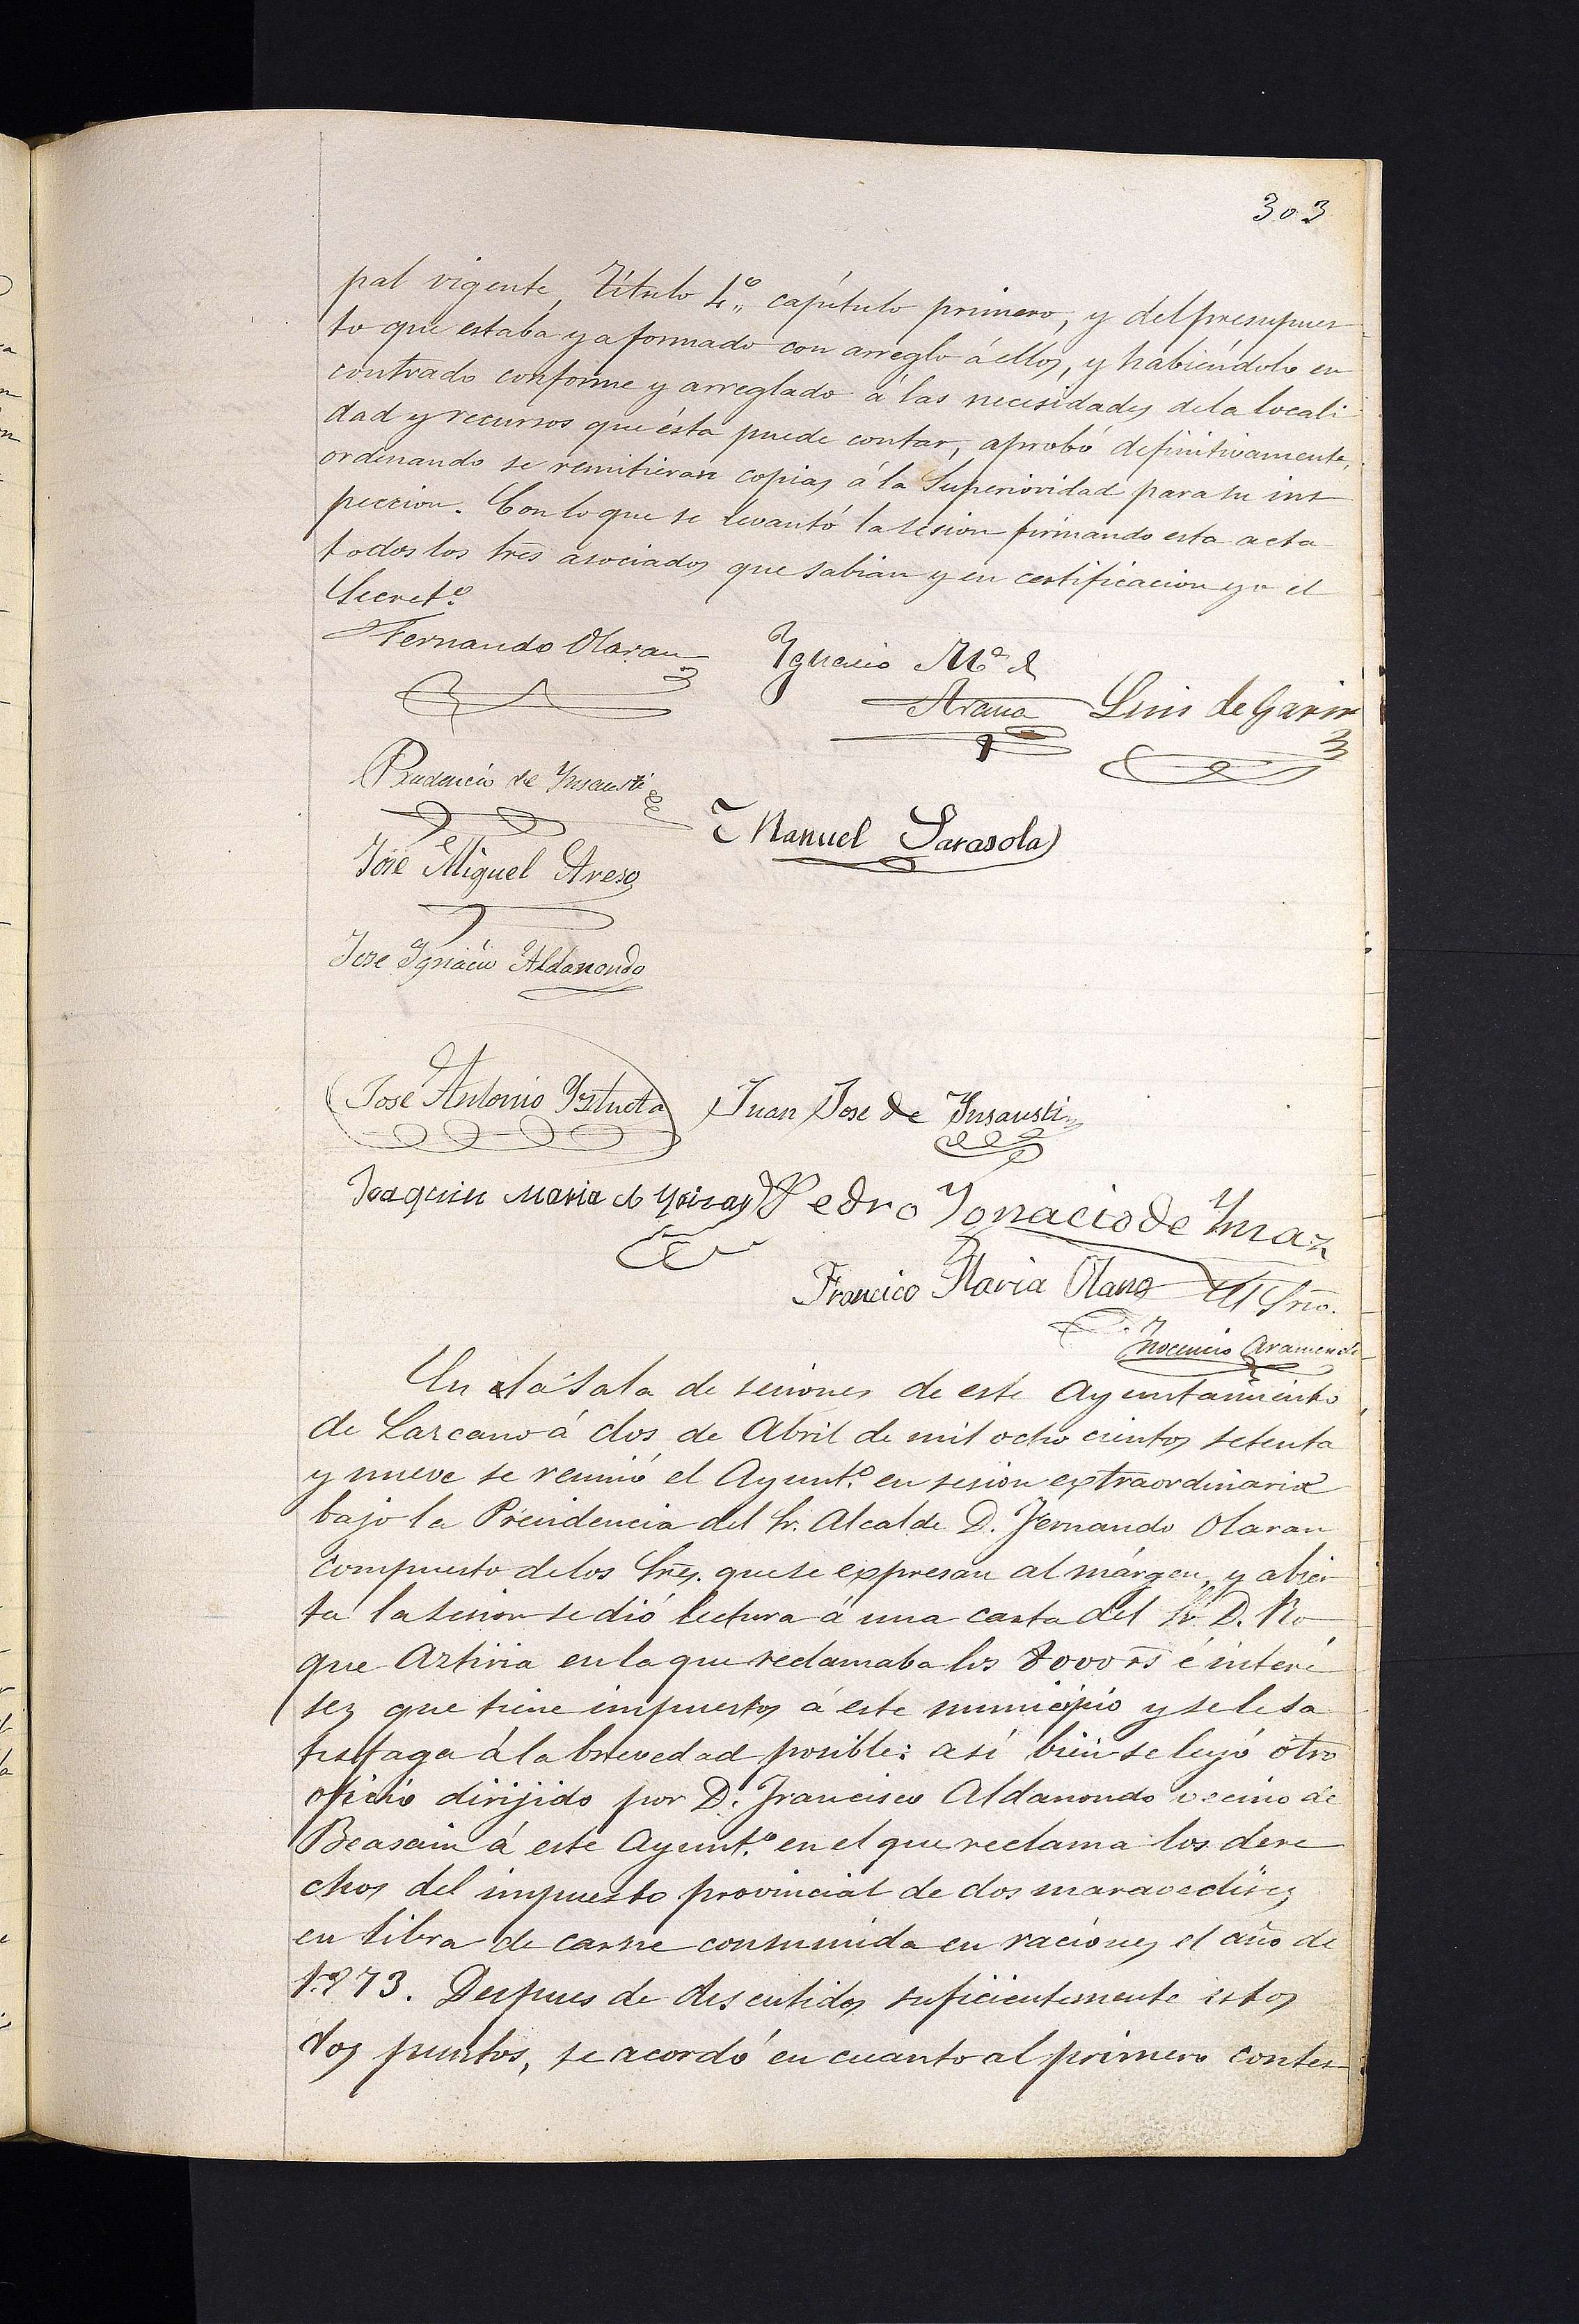 303
pal vigente, Título 4º, capítulo primero, y del presupues
to que estaba ya formado con arreglo á ellos, y habiéndolo en
contrado conforme y arreglado á las necesidades de la locali
dad y recursos que ésta puede contar, aprobó definitivamente,
ordenando se remitieran copias á la Superioridad para su ins
peccion. Con lo que se levantó la sesion firmando esta acta
todos los tres asociados que sabian y en certificacion yo el
Secretº
Fernando Olaran
Ygnacio Mª d
Arana
Luis de Garin
Prudencio de Ynsausti
Manuel Sarasola
José Miguel Areso
Jose Ygnacio Aldanondo
José Antonio Yztueta
Juan Jose de Ynsausti
Joaquin Maria
Pedro Ygnacio de Ymaz
Francico Maria Olano
El Srio.
Ynocencio Aramendi
En la Sala de sesiones de este Ayuntamiento
de Lazcano á dos de Abril de mil ocho cientos setenta
y nueve se reunió el Ayuntº en sesion extraordinaria
bajo la Presidencia del Sr. Alcalde D. Fernando Olaran
compuesto de los Sres. que se expresan al márgen, y abier
ta la sesion se dió lectura á una carta del Sr. D. Ro
que Aztiria en la que reclamaba los 8000 rs é intere
ses que tiene impuestos á este municipio y se le sa
tisfaga á la brevedad posible: así bien se leyó otro
oficio dirijido por D. Francisco Aldanondo vecino de
Beasain á este Ayuntº en el que reclama los dere
chos del impuesto provincial de dos maravedises
en libra de carne consumida en raciones el año de
1873. Despues de discutidos suficientemente estos
dos puntos, se acordó en cuanto al primero contes